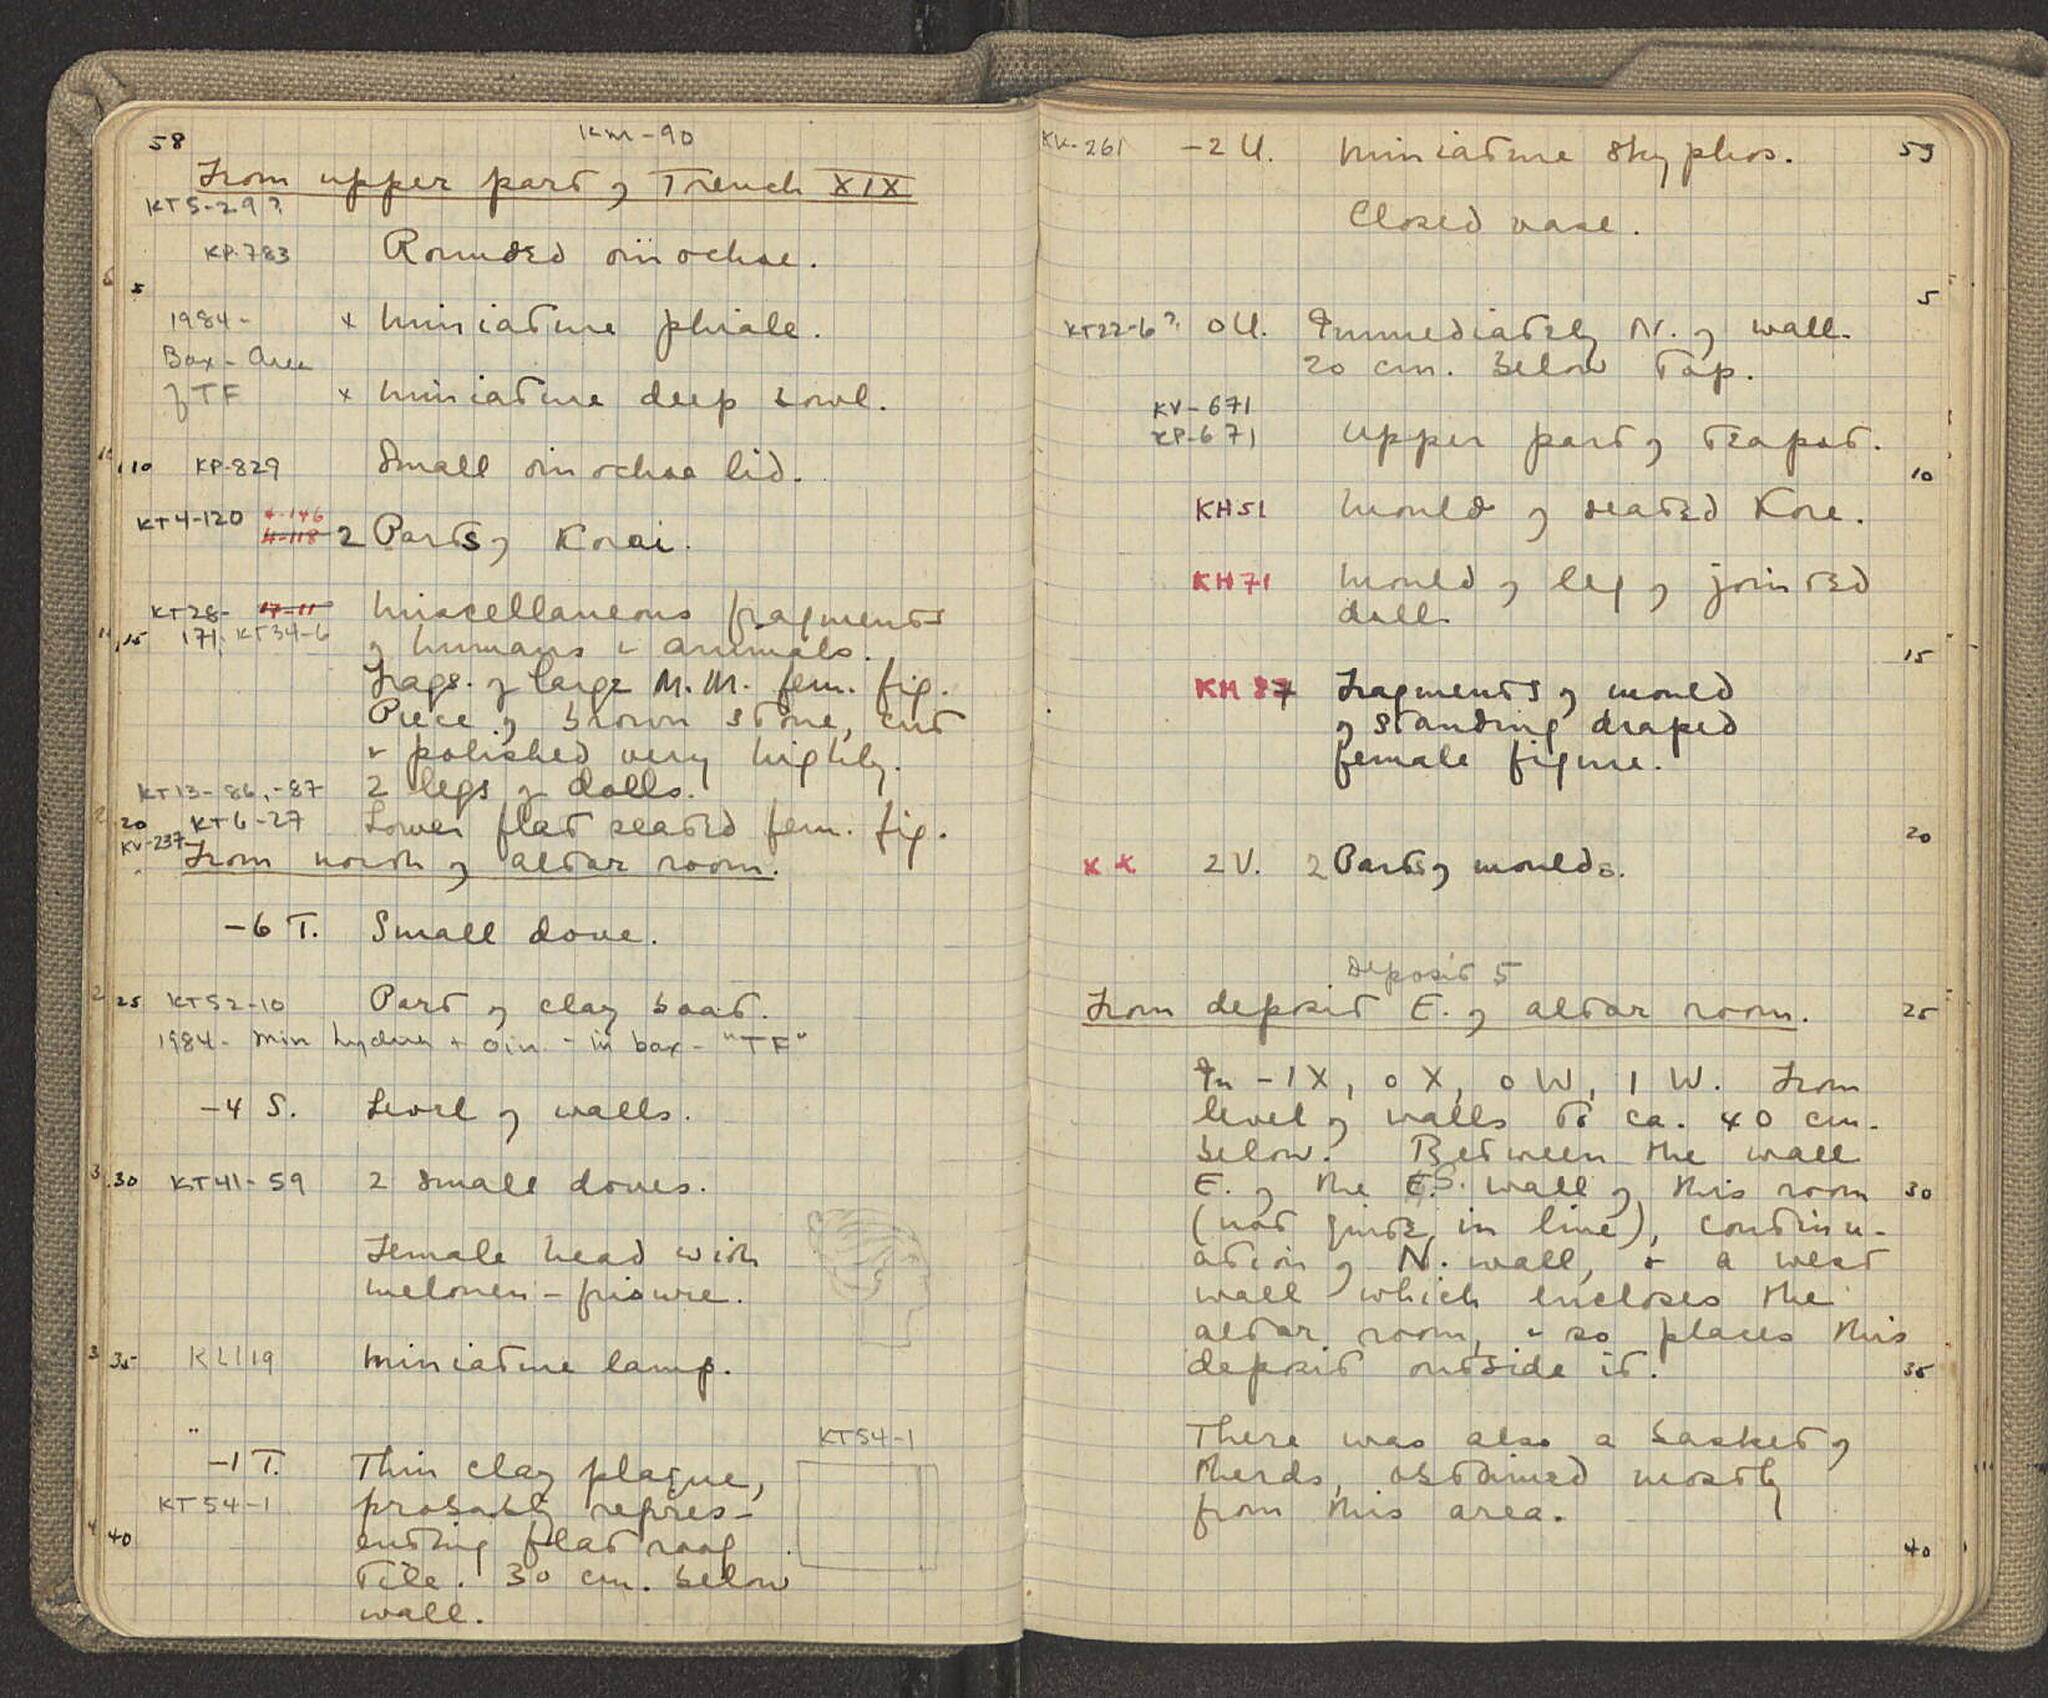 58
KM-90
From upper part of Trench XIX
KT5-29?
KP-783 Rounded oinochoe.
5
1984- x Miniature phiale.
Box - Area
of TF x Miniature deep bowl.
10 KP-829 Small oinochoe lid.
KT4-120 4-146
4-118 2 Parts of Korai.
KT28- 17-11 Miscellaneous fragments
15 171, KT34-6 of humans & animals.
Frags. of large M.M. fem. fig.
Piece of brown stone, cut
& polished very highly.
KT13-86,-87 2 legs of dolls.
20 KT6-27 Lower flat seated fem. fig.
KV-237
From north of altar room.
-6 T. Small dove.
25 KT52-10 Part of clay boat.
1984- Min hydria + oin - in box - "TF"
-4 S. Level of walls.
30 KT41-59 2 small doves.
Female head with
melonen-frisure.
35 KL119 Miniature lamp.
KT54-1
-1 T. Thin clay plaque,
KT54-1 probably repres-
40 enting flat roof
tile. 30 cm. below
wall.
KV-261 -2 U. Miniature skyphos. 59
Closed vase.
5
KT22-6? 0 U. Immediately N. of wall.
20 cm. below top.
KV-671
KP-671 Upper part of teapot.
10
KH51 Mould of seated Kore.
KH71 Mould of leg of jointed
doll.
15
KH 87 Fragments of mould
of standing draped
female figure.
20
KX 2 V. 2 Parts of moulds.
Deposit 5
From deposit E. of altar room. 25
In -1 X, 0 X, 0 W, 1 W. From
level of walls to ca. 40 cm.
below. Between the wall
E. of the E. S. wall of this room 30
(not quite in line), continu-
ation of N. wall, & a west
wall which encloses the
altar room, & so places this
deposit outside it. 35
There was also a basket of
sherds, obtained mostly
from this area.
40